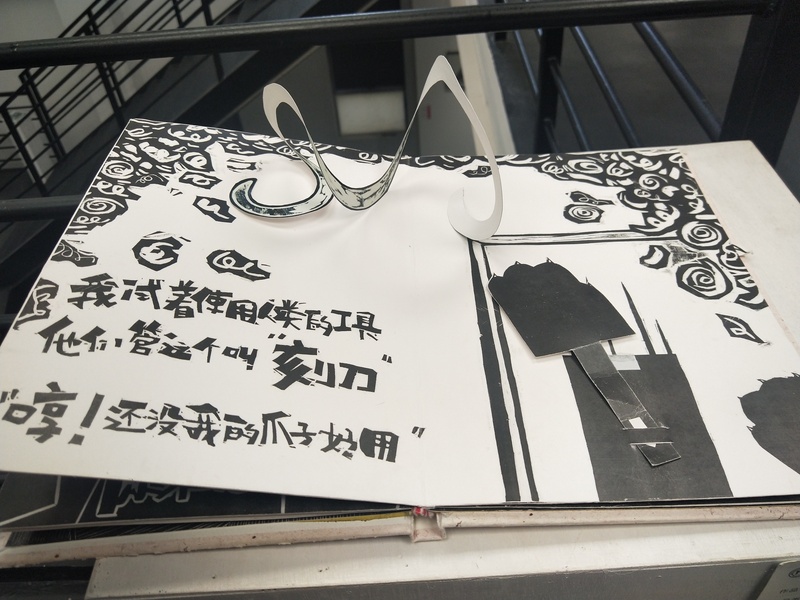 我试着使用人类的工具
他们管这个叫“刻刀”
“哼！还没我的爪子好用”